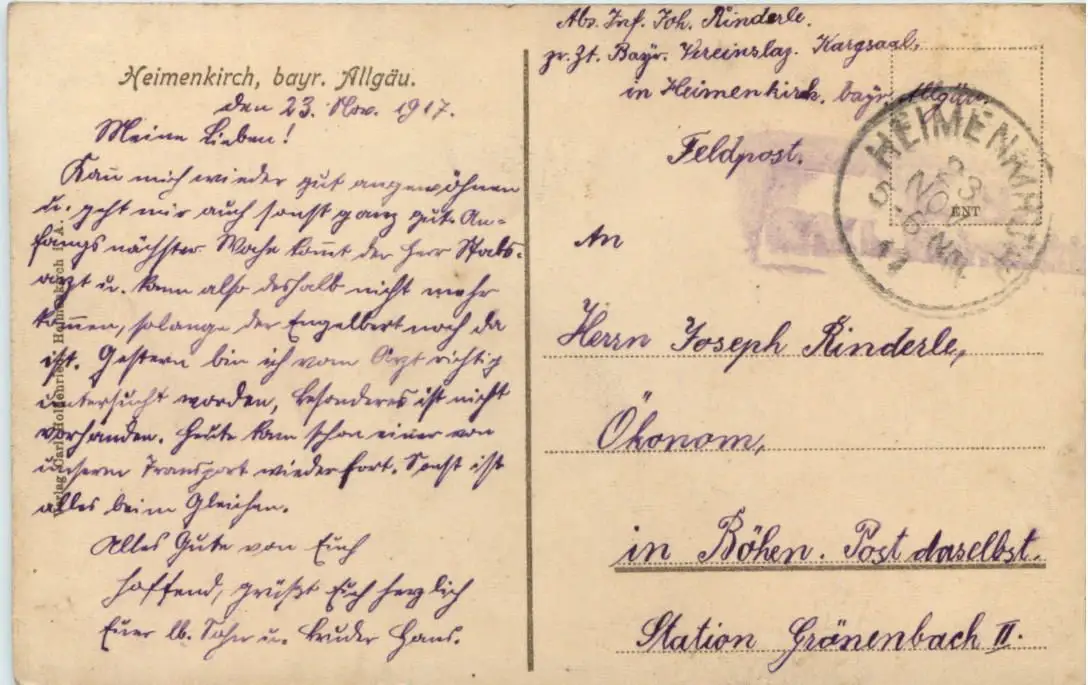 Heimenkirch, bayr. Allgäu.
den 23. Nov. 1917.
Meine Lieben!
Kan̄ mich wieder gut angewöhnen
u. geht mir auch sonst ganz gut. An-
fangs nächster Woche kom̄t der Herr Stabs-
arzt u. kann also deshalb nicht mehr
kom̄en, solange der Engelbert noch da
ist. Gestern bin ich vom Arzt richtig
untersucht worden, besonderes ist nicht
vorhanden. Heute kam schon einer von
unserem Transport wieder fort. Sonst ist
alles beim Gleichen.
Alles Gute von Euch
hoffend, grüßt Euch herzlich
Euer lb. Sohn u. Bruder Hans.
Verlag Carl Holzenried, Heimenkirch i. A.
Abs. Inf. Joh. Rinderle.
zr. Zt. Bayr. Vereinslaz. Kargsaal,
in Heimenkirch, bayr. Allgäu.
Feldpost.
HEIMENKIRCH
23
NOV
5-6 NM.
17
ENT
An
Herrn Joseph Rinderle,
Ökonom,
in Böhen. Post daselbst.
Station Grönenbach II.